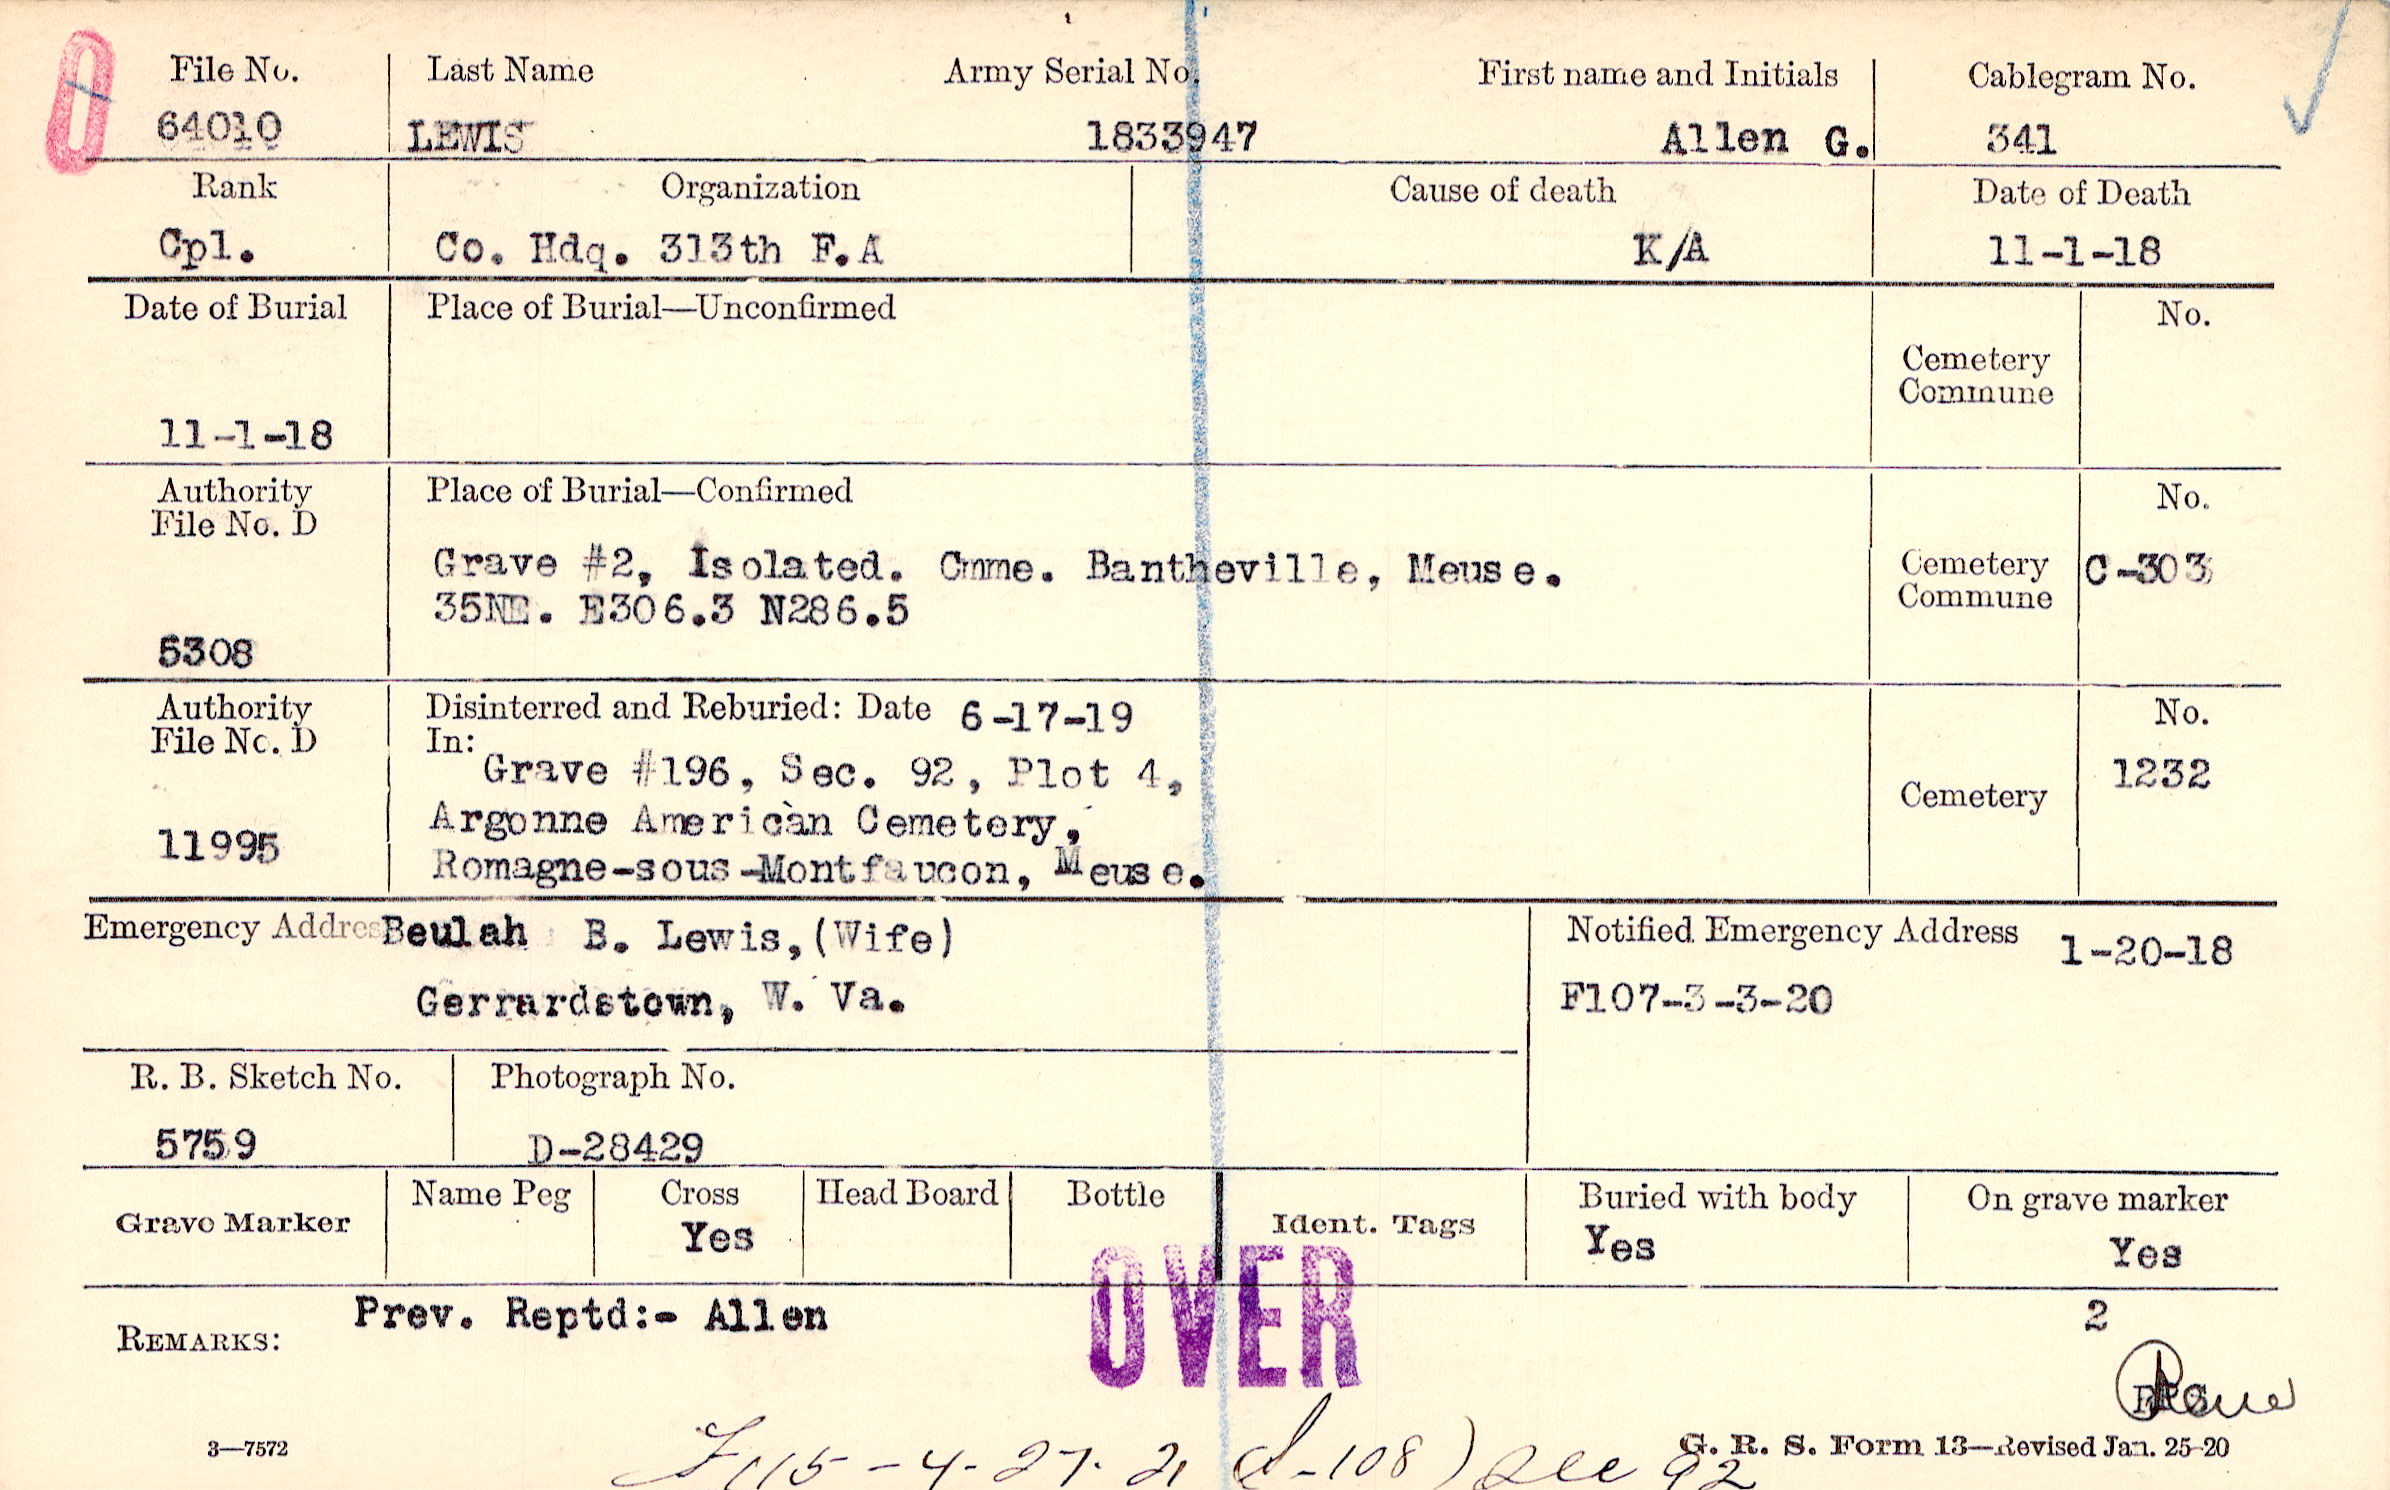 File No. Last Name Army Serial No. First name and Initials Cablegram No.
64010 LEWIS 1833947 Allen G. 341
Rank Organization Cause of death Date of Death
Cpl. Co. Hdq. 313th F.A K/A 11-1-18
Date of Burial Place of Burial—Unconfirmed No.
Cemetery
Commune
11-1-18
Authority Place of Burial—Confirmed No.
File No. D
Grave #2, Isolated. Cmme. Bantheville, Meuse. Cemetery C-303
35NE. E306.3 N286.5 Commune
5308
Authority Disinterred and Reburied: Date 6-17-19 No.
File No. D In:
Grave #196, Sec. 92, Plot 4, 1232
Cemetery
Argonne American Cemetery,
11995
Romagne-sous-Montfaucon, Meuse.
Emergency Addres Beulah B. Lewis,(Wife) Notified Emergency Address 1-20-18
Gerrardstown, W. Va. F107-3-3-20
R. B. Sketch No. Photograph No.
5759 D-28429
Grave Marker Name Peg Cross Head Board Bottle Ident. Tags Buried with body On grave marker
Yes Yes Yes
OVER
REMARKS: Prev. Reptd:- Allen 2
3—7572 G. R. S. Form 13—Revised Jan. 25-20
115-4-27-21 -108) see 92